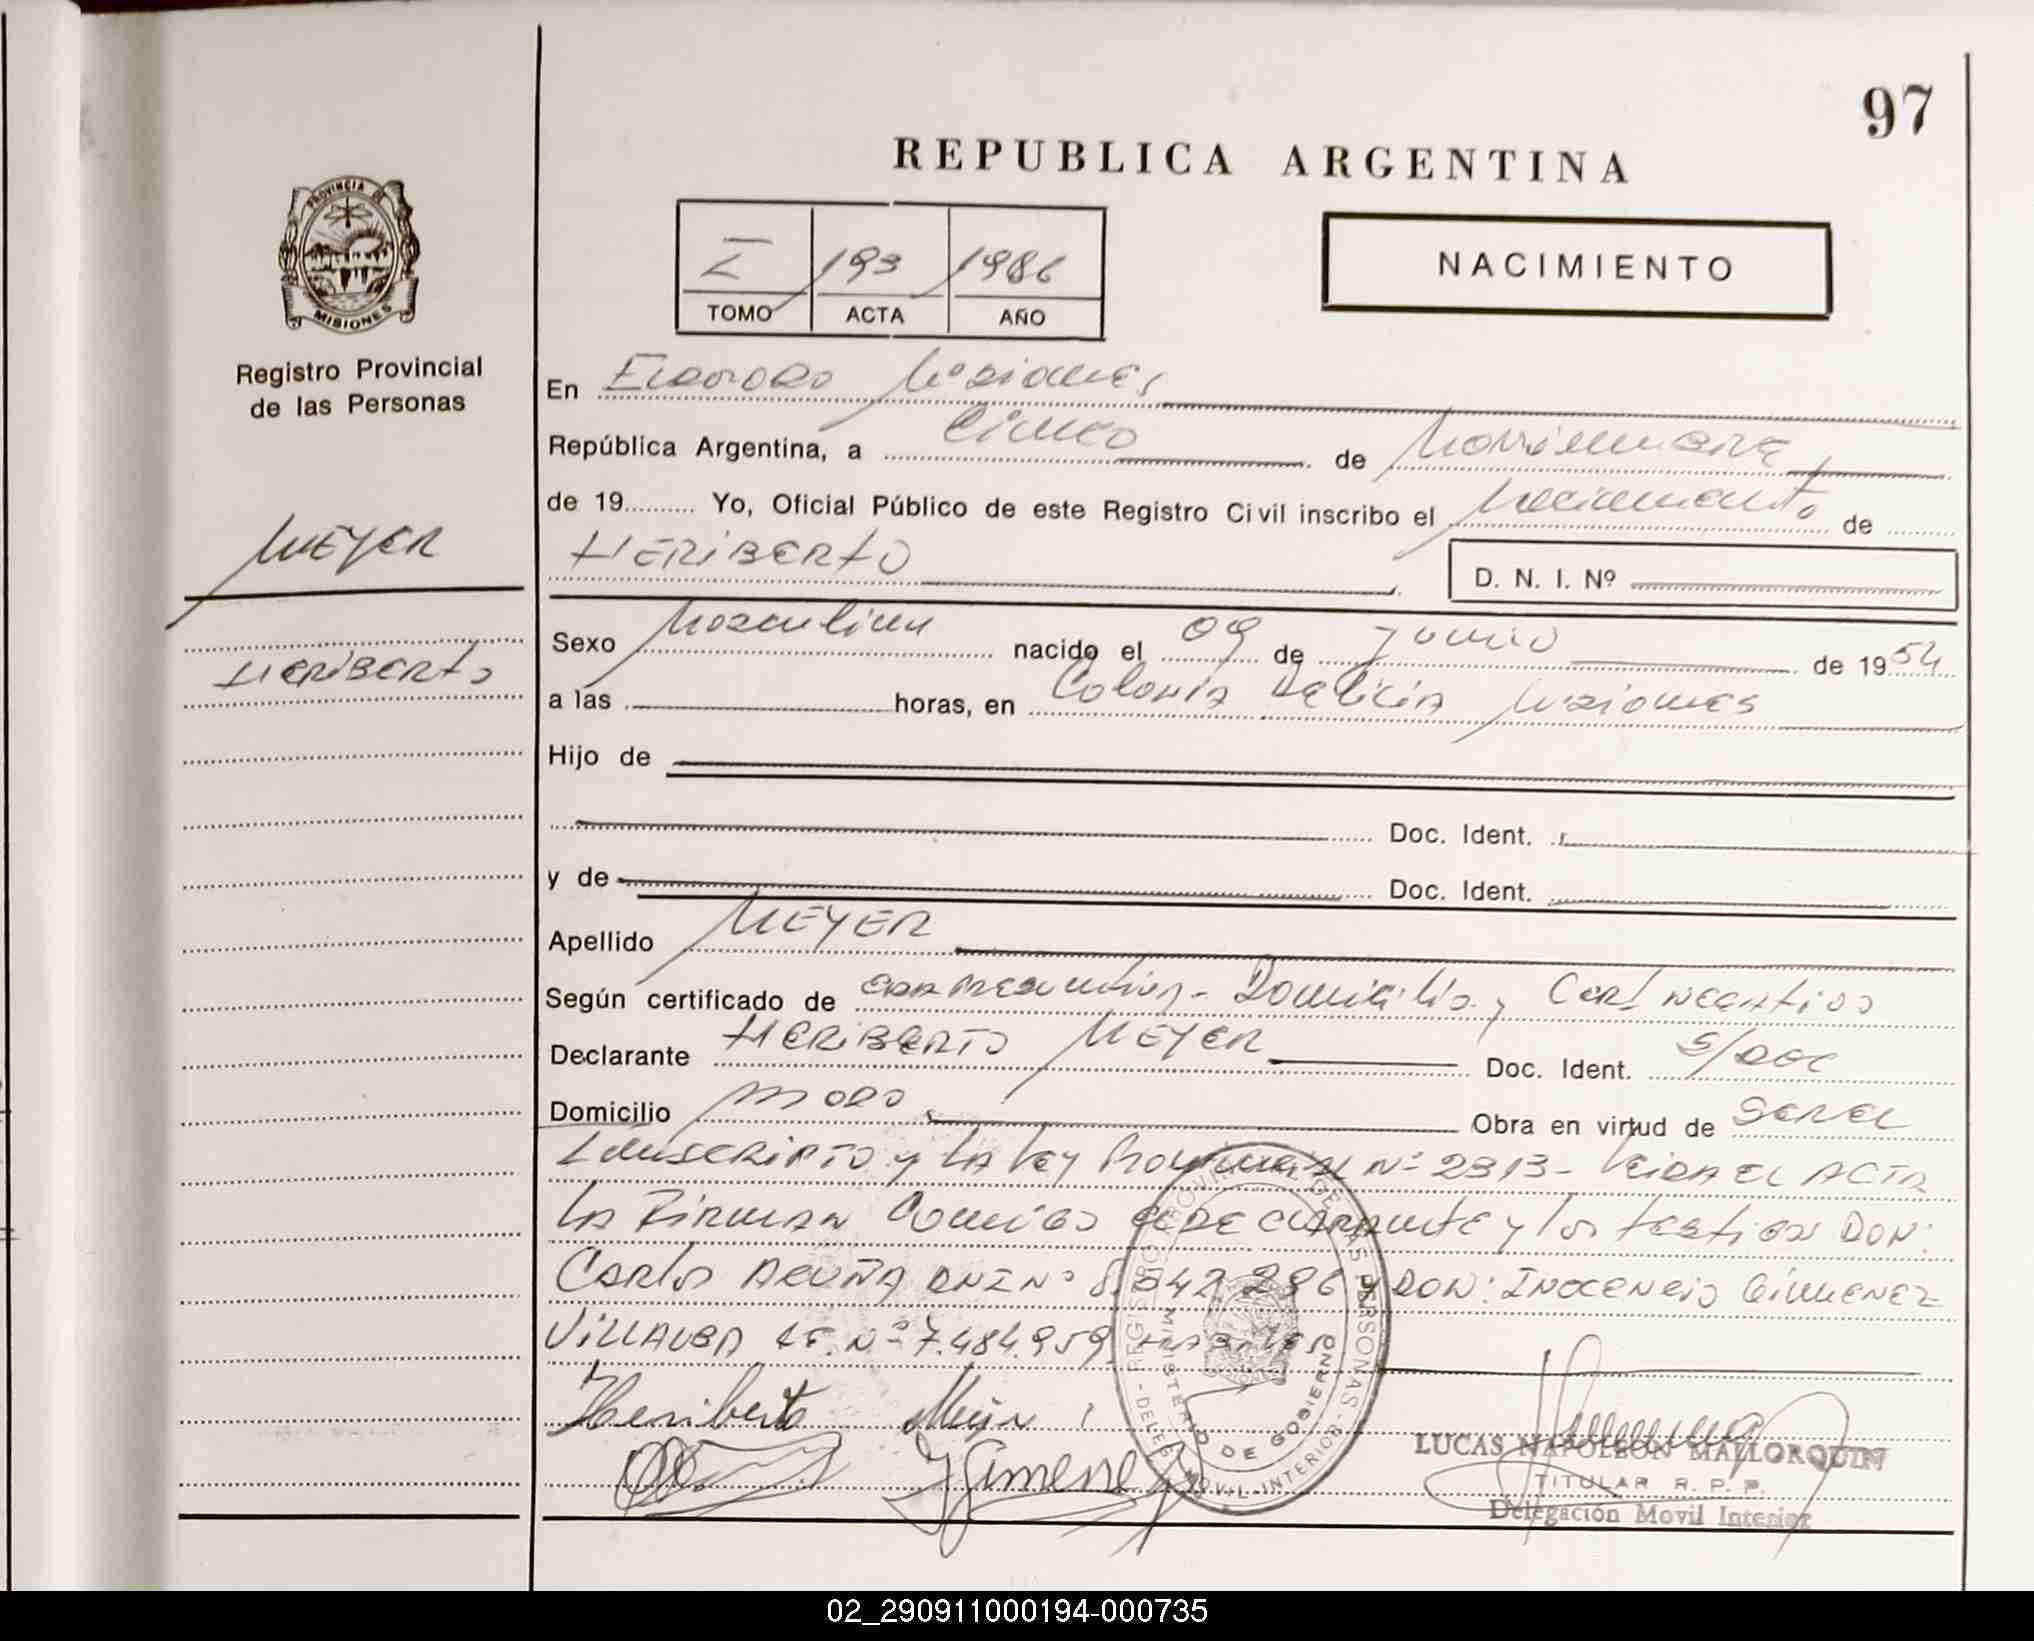 97
REPUBLICA ARGENTINA
PROVINCIA DE
MISIONES
Registro Provincial
de las Personas
I 193 1986
TOMO ACTA AÑO
NACIMIENTO
En Eldorado Misiones,
República Argentina, a Cinco de Noviembre,
de 19 Yo, Oficial Público de este Registro Civil inscribo el Nacimiento de
HERIBERTO
D. N. I. Nº
MEYER
HERIBERTO
Sexo Masculino nacido el 09 de Junio de 1954
a las horas, en Colonia Delicia Misiones
Hijo de
Doc. Ident.
y de Doc. Ident.
Apellido MEYER
Según certificado de Domicilio y Cert Negativo
Declarante HERIBERTO MEYER Doc. Ident. S/DOC
Domicilio Obra en virtud de SER EL
Inscripto y la Ley Provincial Nº 2313- Leida EL ACTA
LA Firman Conmigo el DECLARANTE y los testigos DON:
Carlos ACUÑA DNI Nº 8.542.286 y DON: INOCENCIO GIMENEZ
VILLALBA Nº 7.484.959
Heriberto Meyer
Gimenez
REGISTRO PROVINCIAL DE LAS PERSONAS
MINISTERIO DE GOBIERNO
DELEG. MOVIL INTERIOR
LUCAS NAPOLEON MALLORQUIN
TITULAR R. P. P.
Delegación Movil Interior
02_290911000194-000735